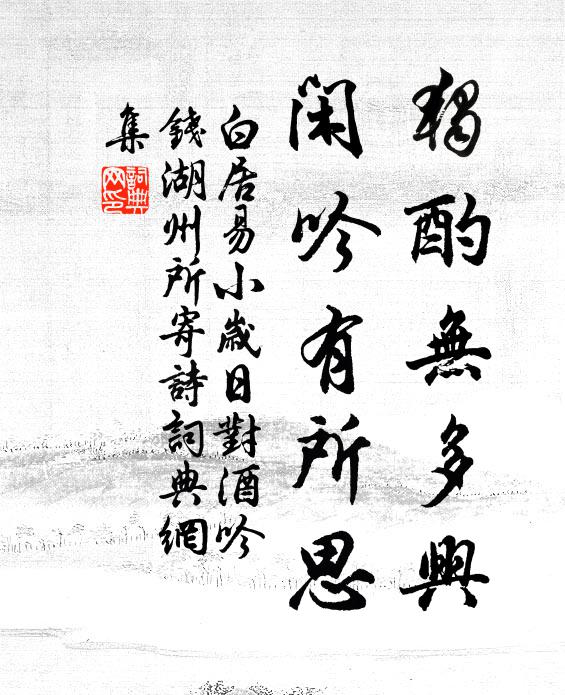 獨酌無多興
閑吟有所思
白居易小歲日對酒吟
錢湖州所寄詩詞典網
集
詞典
网印